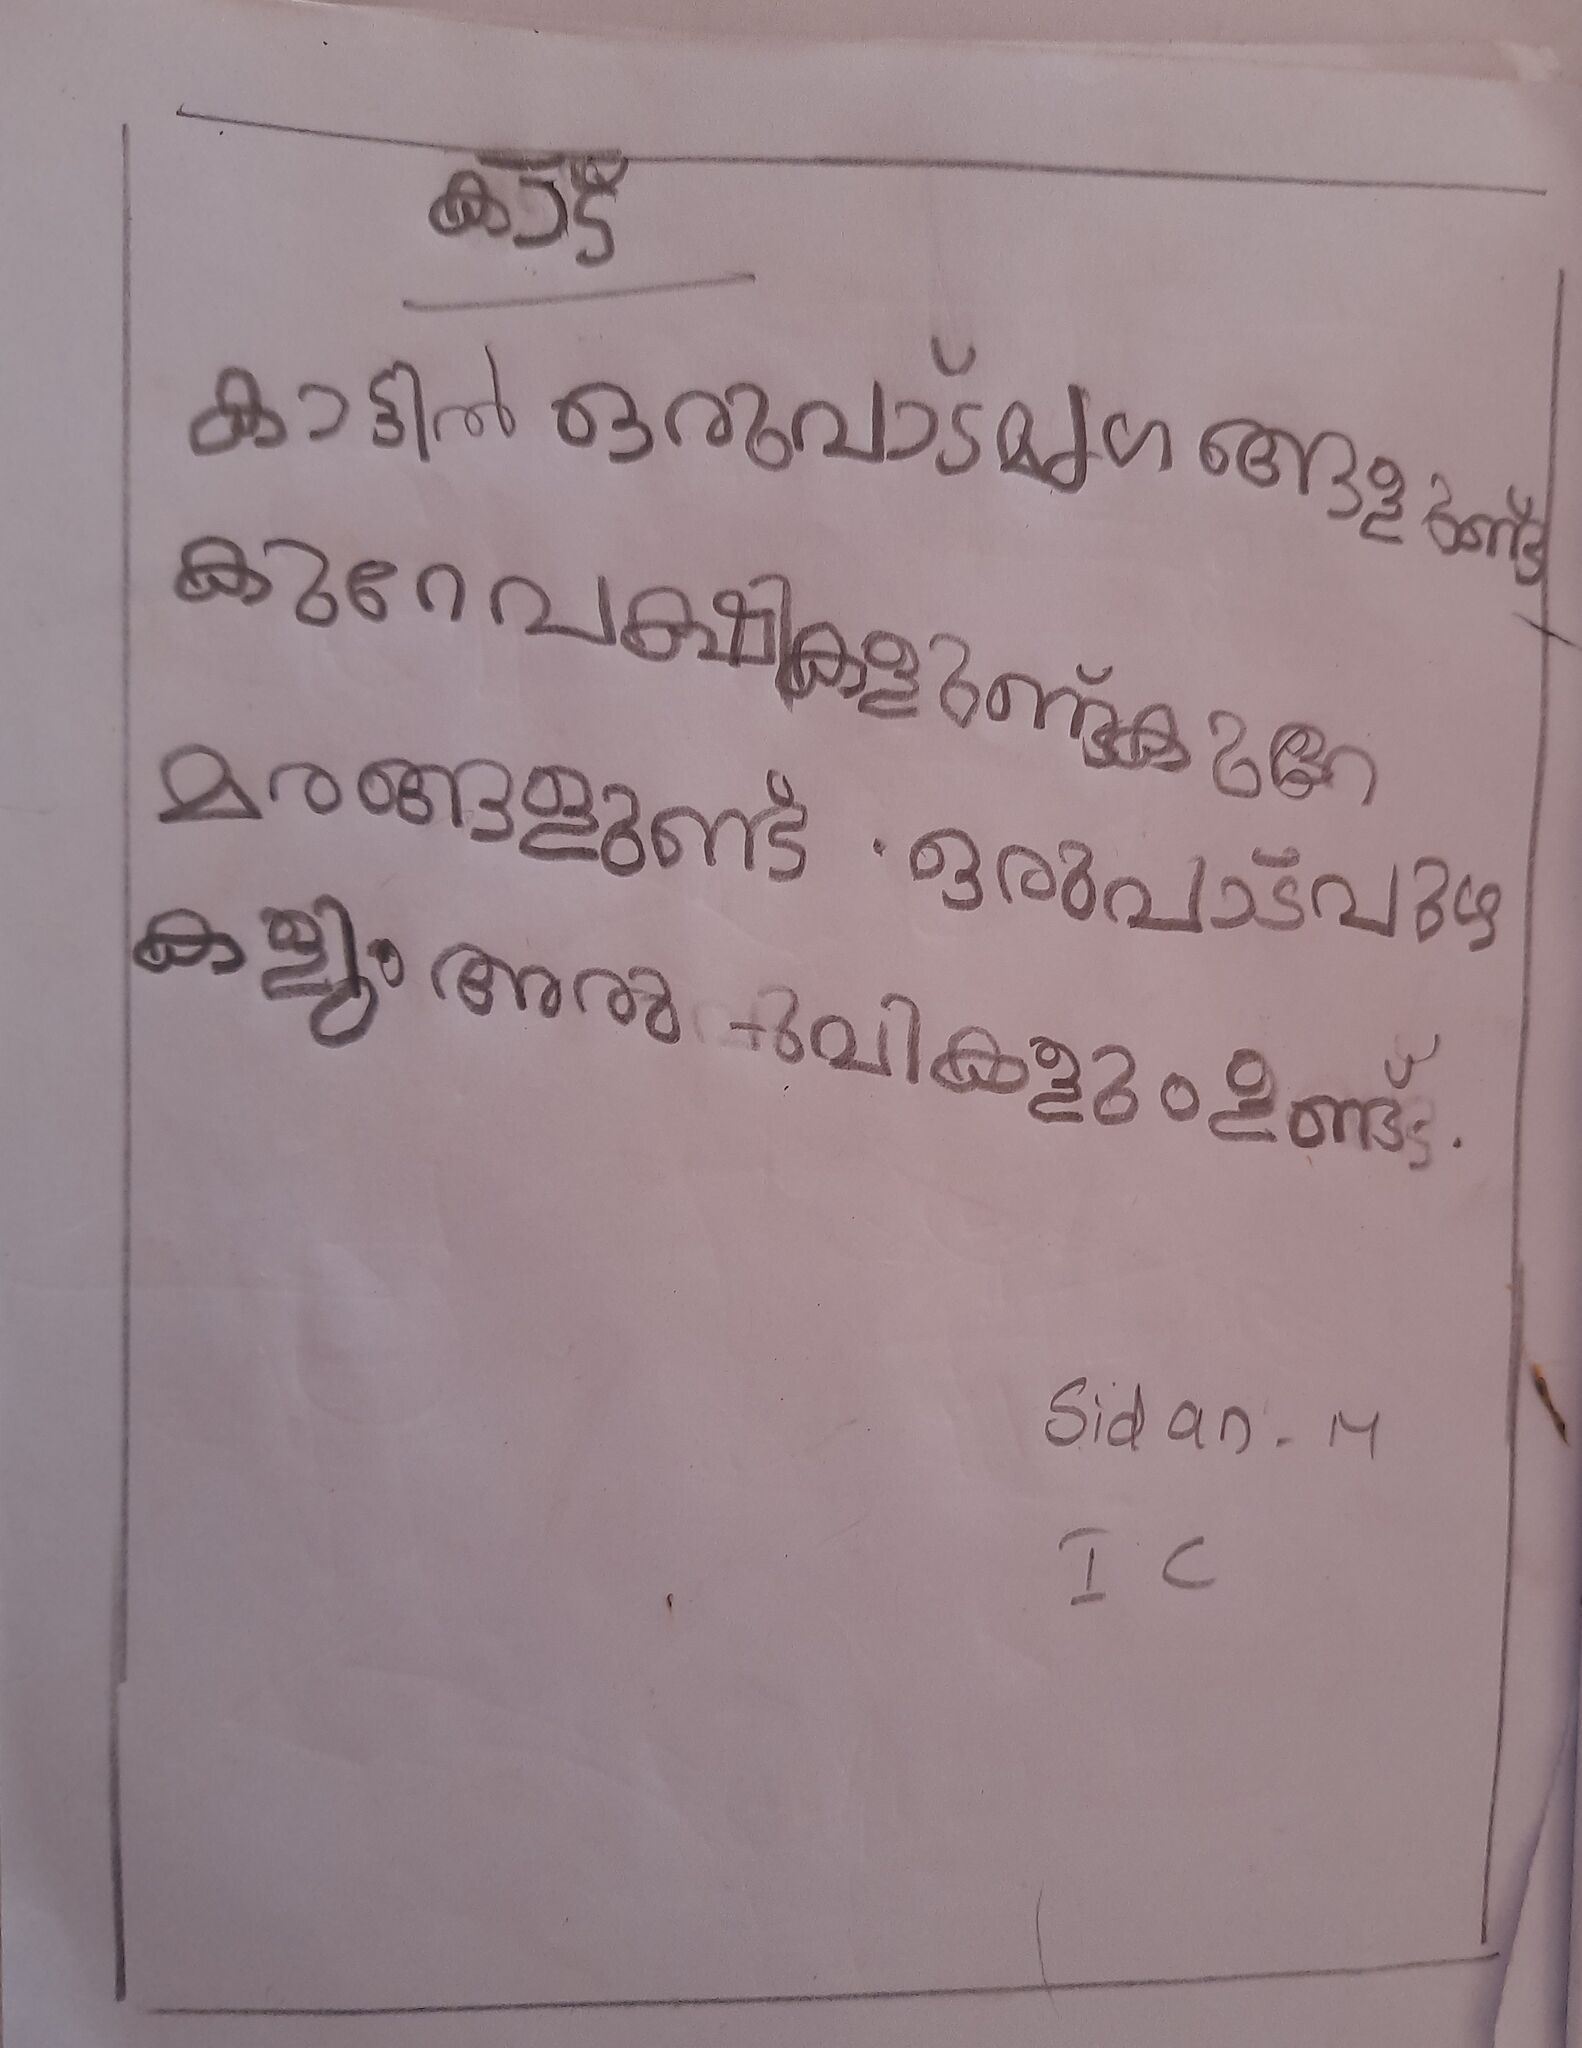 കാട്
കാട്ടിൽ ഒരുപാട് മൃഗങ്ങളുണ്ട്
കുറേ പക്ഷികളുണ്ട് കുറേ
മരങ്ങളുണ്ട്. ഒരുപാട് പുഴ
കളും അരുവികളും ഉണ്ട്.
Sidan. M
I C